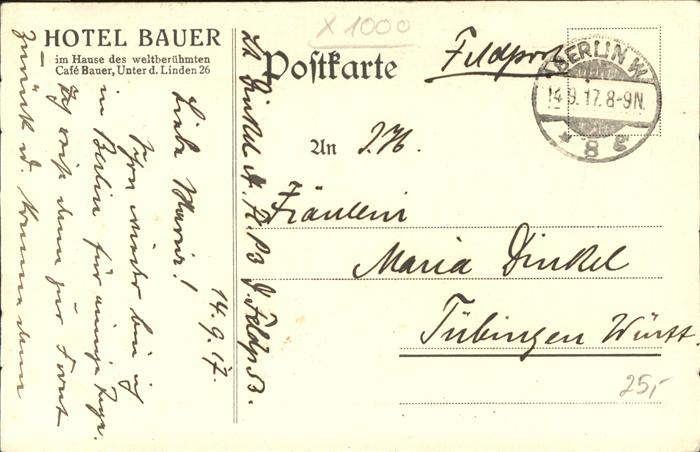 HOTEL BAUER
im Hause des weltberühmten
Café Bauer, Unter d. Linden 26
14. 9. 17.
Liebe Marie!
bin ich
in Berlin für einige Tage.
Ich reise dann zur Front
zurück u. komme dann
Dinkel
Feldp. 53.
X 1000
Postkarte
Feldpost
BERLIN W
14.9.17. 8-9N.
* 8
An I. H.
Fräulein
Maria Dinkel
Tübingen Württ.
25,-